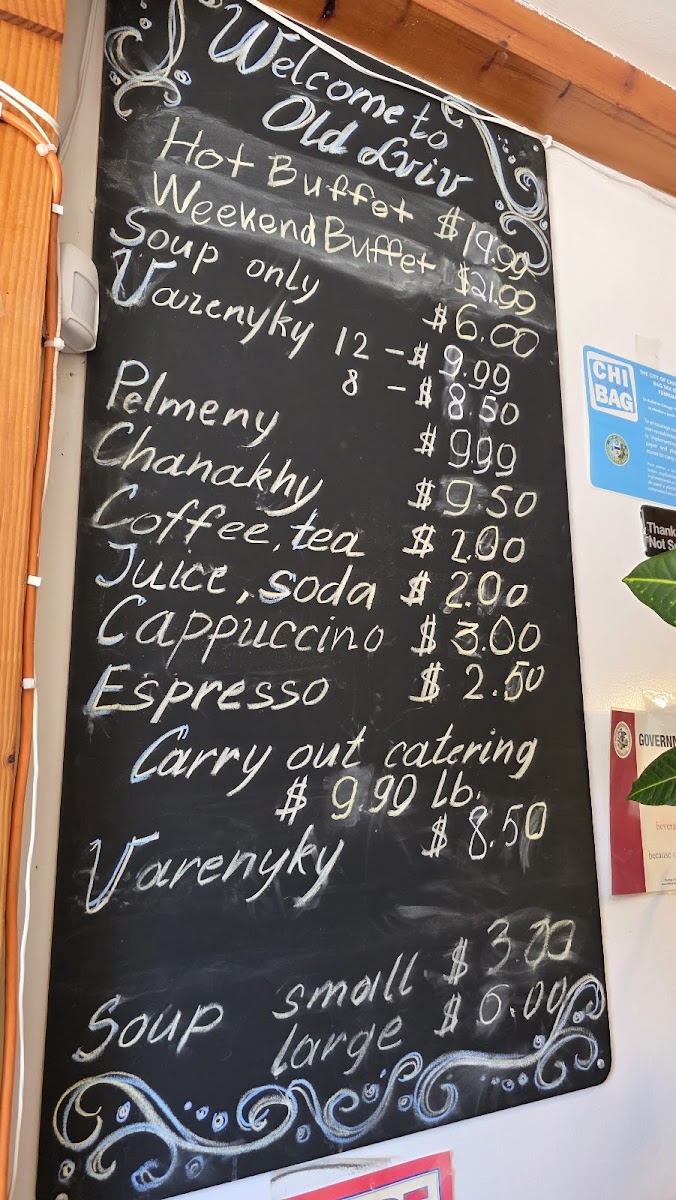 Welcome to
Old Lviv
Hot Buffet $19.99
Weekend Buffet $21.99
Soup only $6.00
Varenyky 12 - $9.99
8 - $8.50
Pelmeny $9.99
Chanakhy $9.50
Coffee, tea $2.00
Juice, soda $2.00
Cappuccino $3.00
Espresso $2.50
Carry out catering
$9.90 lb.
Varenyky $8.50
Soup small $3.00
large $6.00
CHI
BAG
THE CITY OF
Thank
"Not
GOVERN
because